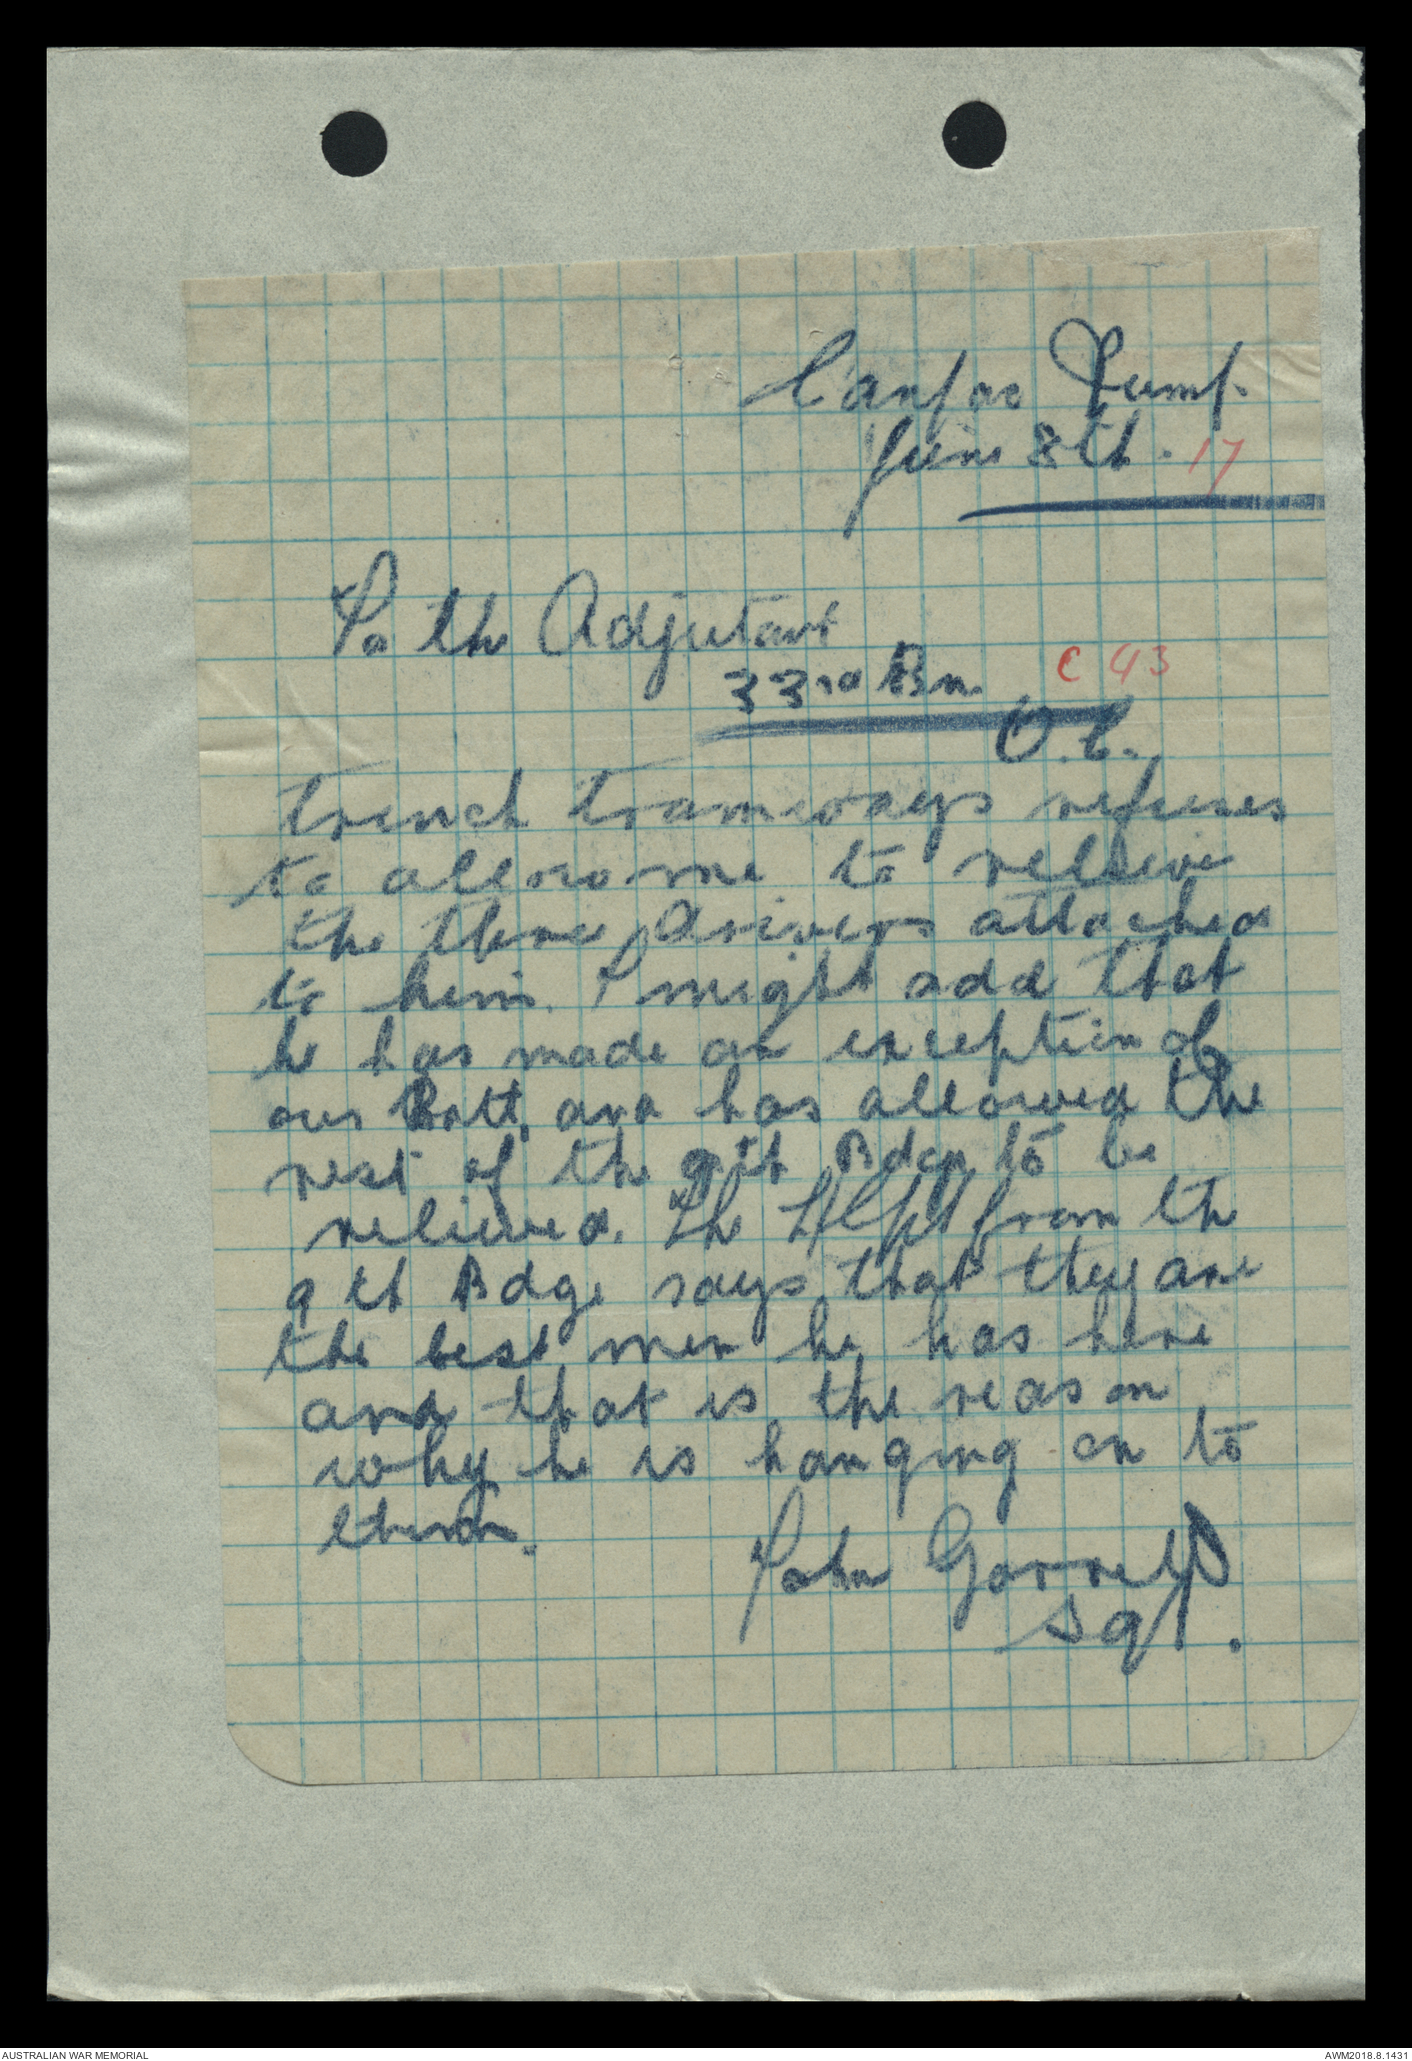 Dump.
June 8th. 17
To the Adjutant
33rd Bn. C 43
O.C.
Trench Tramways refuses
to allow me to relieve
the three Drivers attached
to him. I might add that
he has made an exception of
our Batt. and has allowed the
rest of the 9th Bdge to be
relieved. The from the
9th Bdge says that they are
the best men he has here
and that is the reason
why he is hanging on to
them.
John
Sgt.
AUSTRALIAN WAR MEMORIAL
AWM2018.8.1431